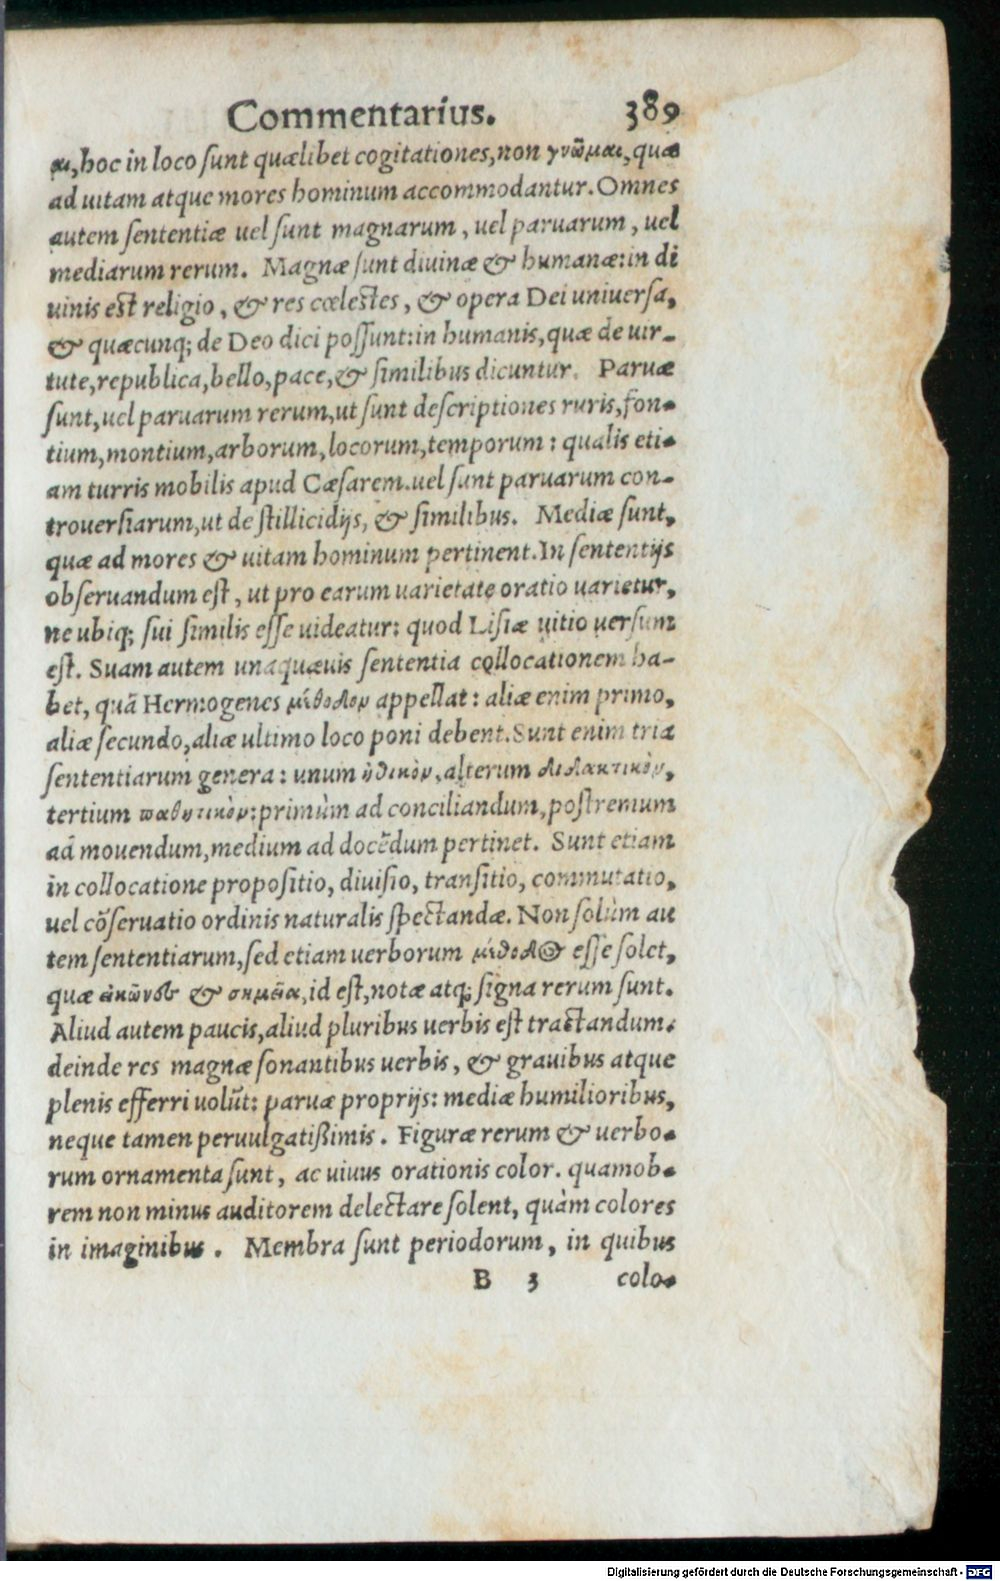 Commentarius. 389
αι, hoc in loco sunt quælibet cogitationes, non γνῶμαι, quæ
ad uitam atque mores hominum accommodantur. Omnes
autem sententiæ uel sunt magnarum, uel paruarum, uel
mediarum rerum. Magnæ sunt diuinæ & humanæ: in di
uinis est religio, & res cœlestes, & opera Dei uniuersa,
& quæcunq; de Deo dici possunt: in humanis, quæ de uir-
tute, republica, bello, pace, & similibus dicuntur. Paruæ
sunt, uel paruarum rerum, ut sunt descriptiones ruris, fon-
tium, montium, arborum, locorum, temporum: qualis eti-
am turris mobilis apud Cæsarem. uel sunt paruarum con-
trouersiarum, ut de stillicidijs, & similibus. Mediæ sunt,
quæ ad mores & uitam hominum pertinent. In sententijs
obseruandum est, ut pro earum uarietate oratio uarietur,
ne ubiq; sui similis esse uideatur: quod Lisiæ uitio uersum
est. Suam autem unaquæuis sententia collocationem ha-
bet, quã Hermogenes μέθοδον appellat: aliæ enim primo,
aliæ secundo, aliæ ultimo loco poni debent. Sunt enim tria
sententiarum genera: unum ἠθικὸν, alterum διδακτικὸν,
tertium παθητικὸν: primùm ad conciliandum, postremum
ad mouendum, medium ad docẽdum pertinet. Sunt etiam
in collocatione propositio, diuisio, transitio, commutatio,
uel cõseruatio ordinis naturalis spectandæ. Non solùm au
tem sententiarum, sed etiam uerborum μέθοδος esse solet,
quæ εἰκῶνες & σημεῖα, id est, notæ atq; signa rerum sunt.
Aliud autem paucis, aliud pluribus uerbis est tractandum.
deinde res magnæ sonantibus uerbis, & grauibus atque
plenis efferri uolũt: paruæ proprijs: mediæ humilioribus,
neque tamen peruulgatißimis. Figuræ rerum & uerbo-
rum ornamenta sunt, ac uiuus orationis color. quamob-
rem non minus auditorem delectare solent, quàm colores
in imaginibus. Membra sunt periodorum, in quibus
B 3 colo-
Digitalisierung gefördert durch die Deutsche Forschungsgemeinschaft - DFG